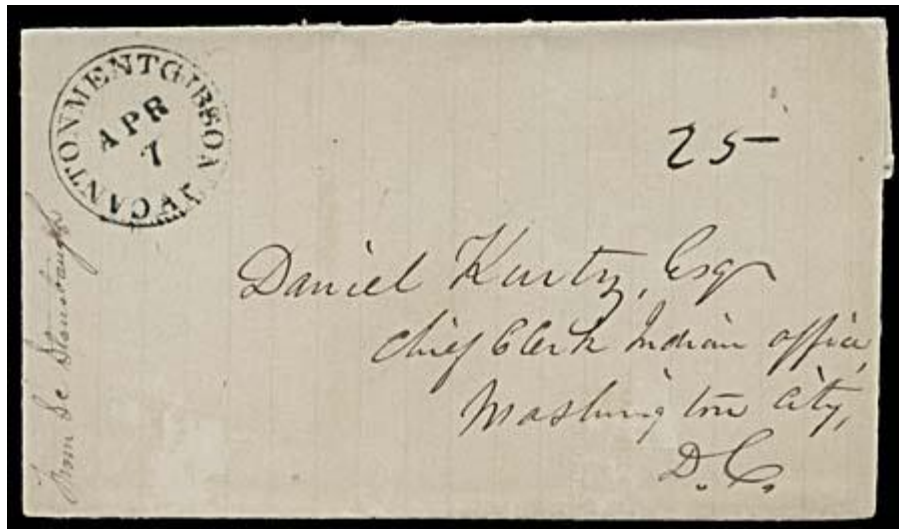 CANTONMENT GIBSON
APR
7
25
Daniel Kurtz, Esqr
Chief Clerk Indian office,
Washington City,
D.C.
from